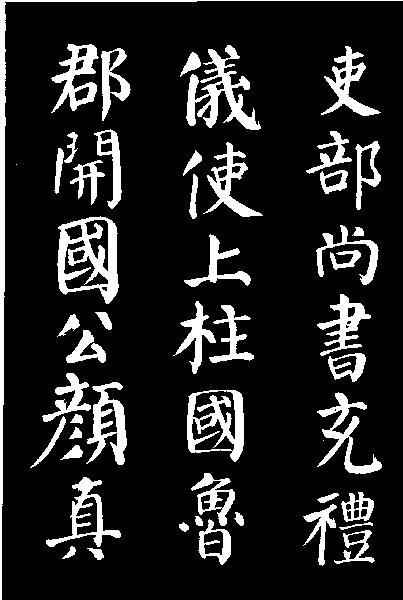 吏部尚書充禮
儀使上柱國魯
郡開國公顔真